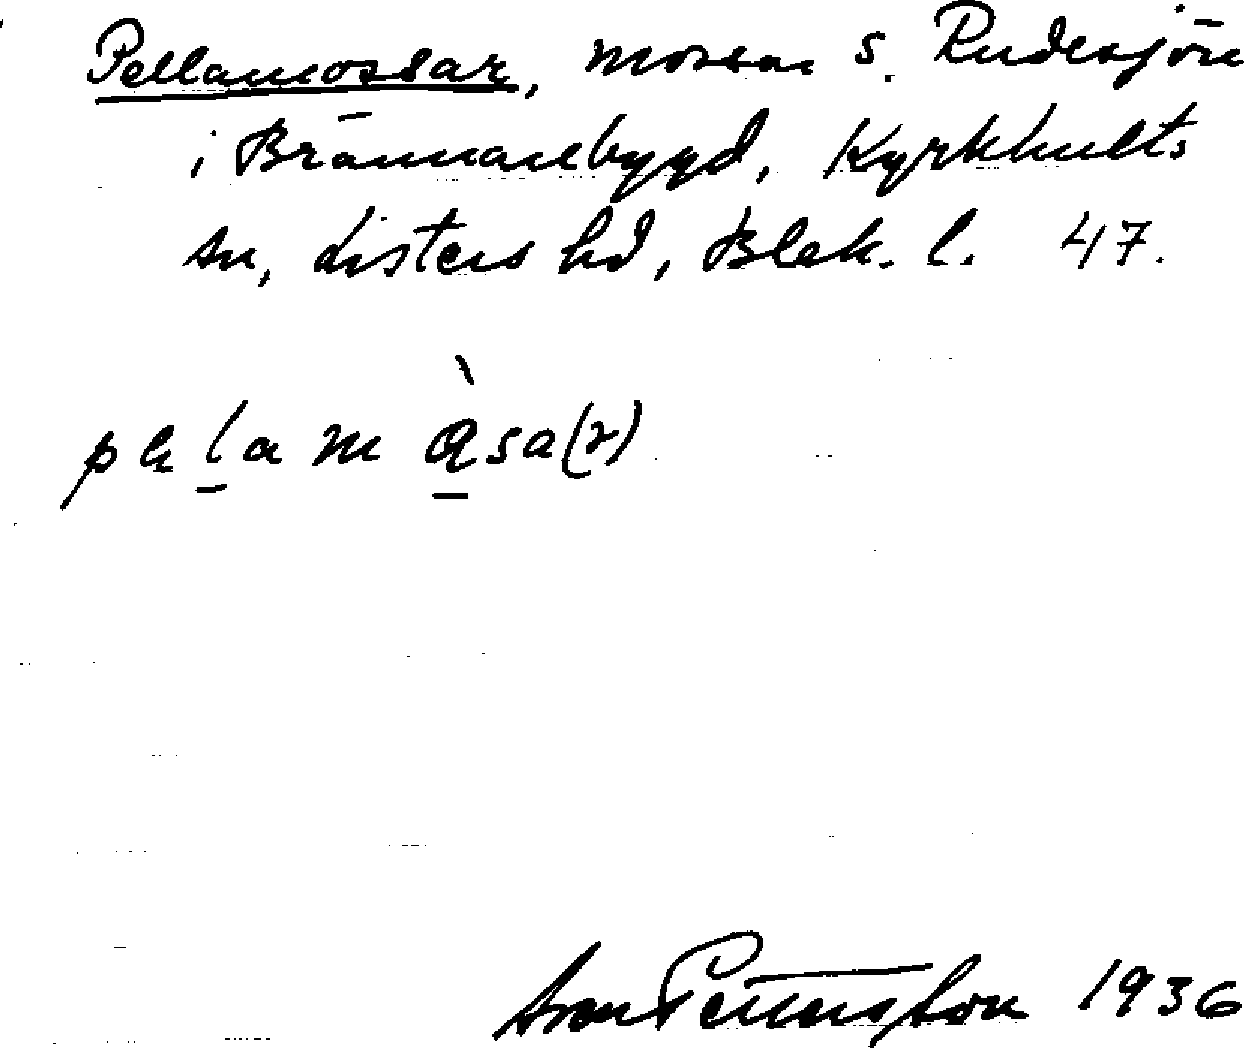 Pellamossar, mossar s. Rudesjön
i Brännarebygd, Kyrkhults
sn, Listers hd, Blek. l. 47.
pälamåsa(r)
Pettersson 1936